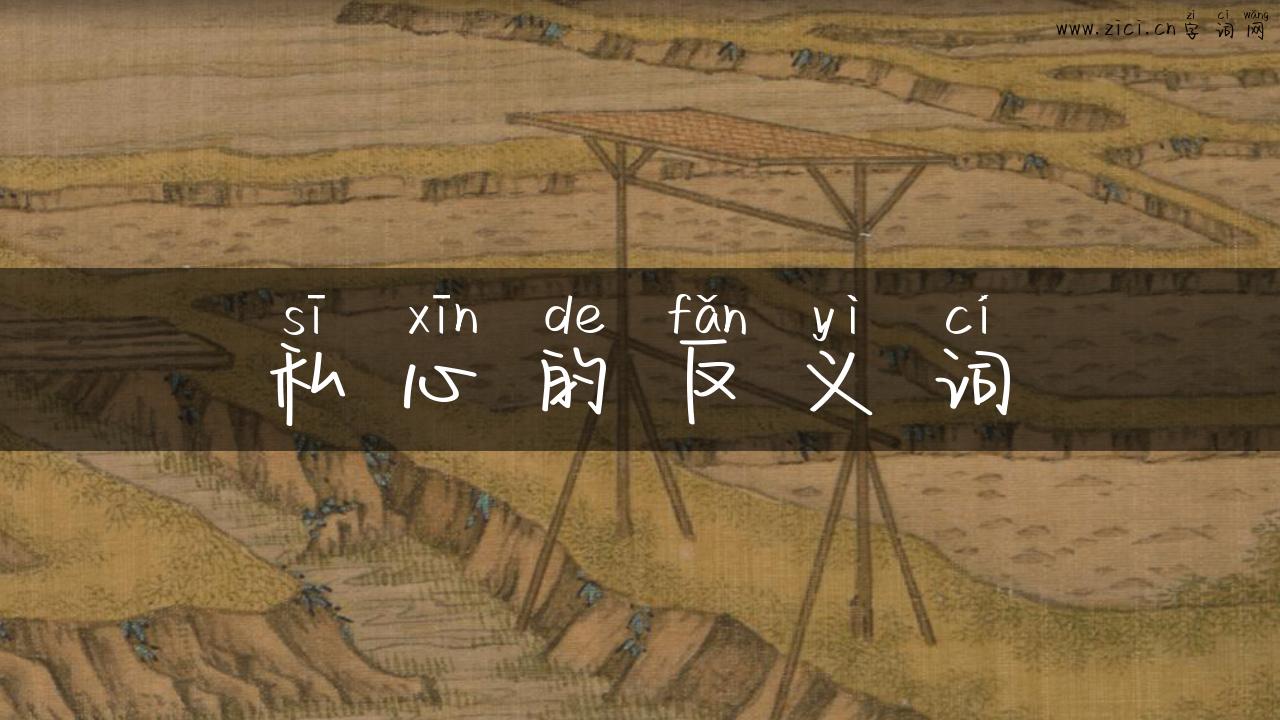 zì cí wǎng
www.zici.cn 字 词 网
sī xīn de fǎn yì cí
私 心 的 反 义 词